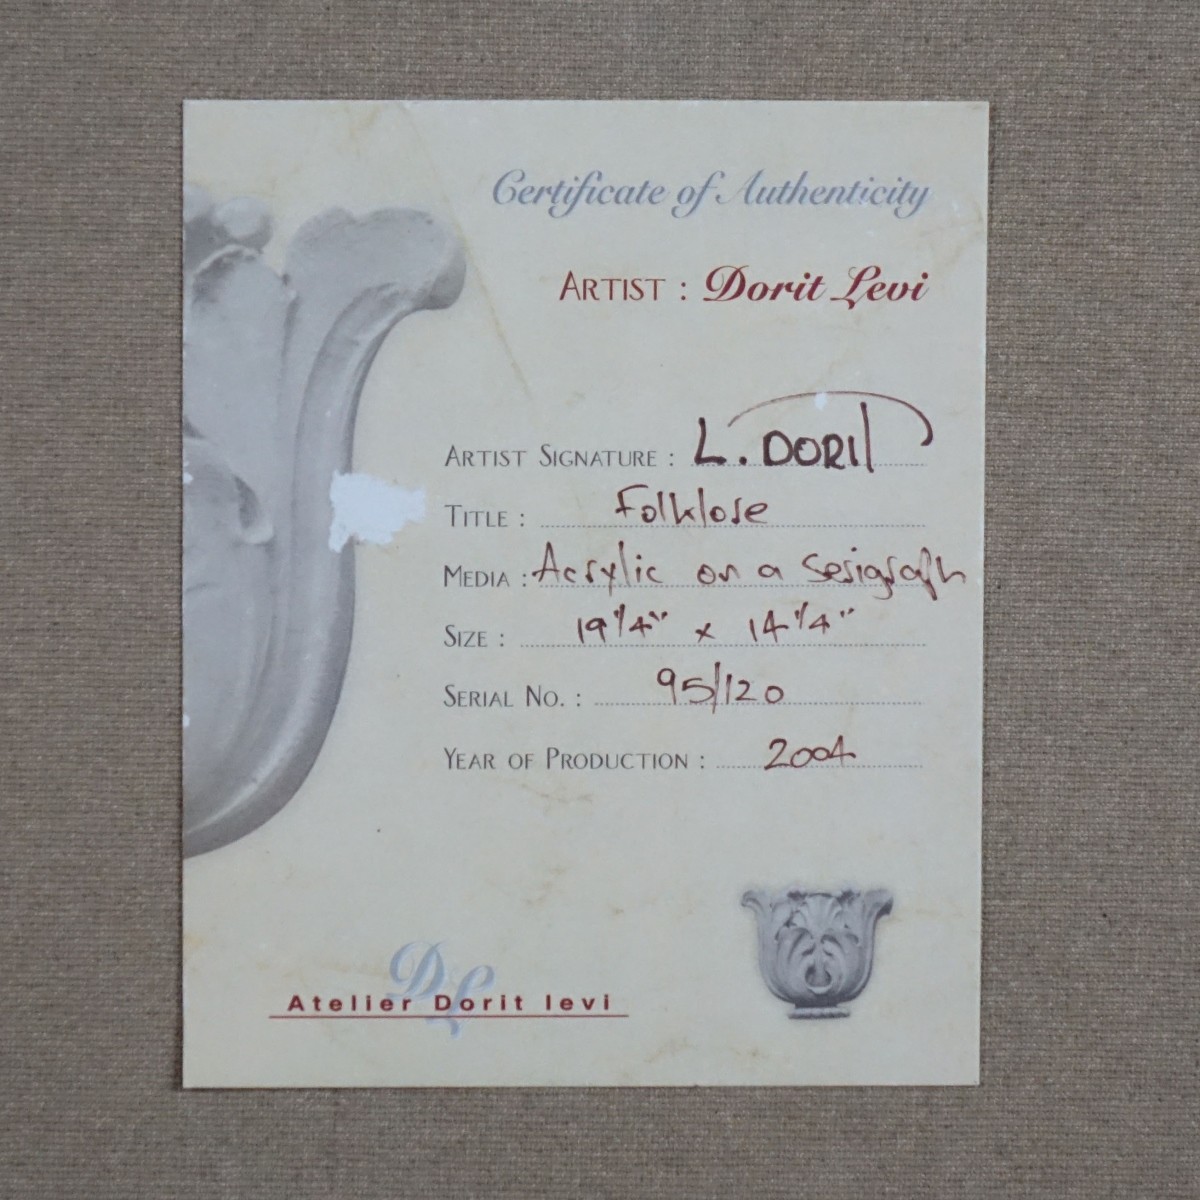 Certificate of Authenticity
ARTIST : Dorit Levi
ARTIST SIGNATURE : L. DORIT
TITLE : Folklore
MEDIA : Acrylic on a Serigraph
SIZE : 19 1/4" x 14 1/4"
SERIAL NO. : 95/120
YEAR OF PRODUCTION : 2004
DL
Atelier Dorit levi